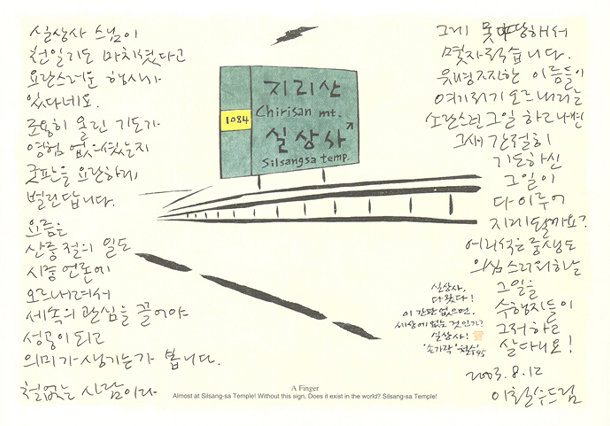 실상사 스님이
천일기도 마치셨다고
요란스러운 행사가
있다네요.
조용히 올린 기도가
영험 없으셨는지
굿판을 요란하게
벌린답니다.
요즘은
산중 절의 일도
시중 언론에
오르내려서
세속의 관심을 끌어야
성공이 되고
의미가 생기는가 봅니다.
철없는 사람이라
그게 못마땅해서
몇자 적습니다.
유명짜한 이름들이
여기저기 오르내리는
소란스런 그 일 하고나면
그새 간절히
기도하신
그 일이
다 이루어
지게 될까요?
어리석은 중생도
의심스러워하는
그 일을
수행자들이
그저 하고
살다니요!
2003.8.12
이철수드림
지리산
Chirisan mt.
1084
실상사
Silsangsa temp.
실상사.
다 왔다!
이 간판 없으면.
세상에 없는 것인가?
실상사!
"손가락" 철수 95
A Finger
Almost at Silsang-sa Temple! Without this sign, Does it exist in the world? Silsang-sa Temple!